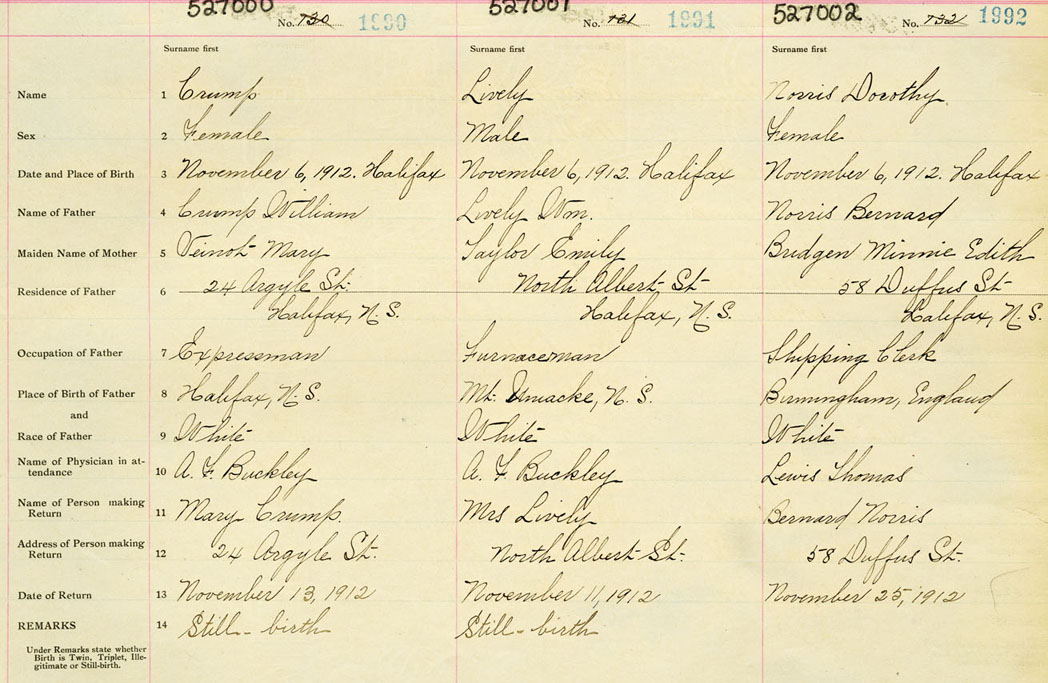 527000 No. 730 1990 527001 No. 731 1991 527002 No. 732 1992
Surname first Surname first Surname first
Name 1 Crump Lively Norris Dorothy.
Sex 2 Female Male Female
Date and Place of Birth 3 November 6, 1912. Halifax November 6, 1912. Halifax November 6, 1912. Halifax
Name of Father 4 Crump William Lively Wm. Norris Bernard
Maiden Name of Mother 5 Veinot Mary Taylor Emily Bridgen Minnie Edith
Residence of Father 6 24 Argyle St. North Albert St 58 Duffus St
Halifax, N.S. Halifax, N.S. Halifax, N.S.
Occupation of Father 7 Expressman Furnaceman Shipping Clerk
Place of Birth of Father 8 Halifax, N.S. Mt. Uniacke, N.S. Birmingham, England
and
Race of Father 9 White White White
Name of Physician in at-
tendance 10 A. F. Buckley A. F. Buckley Lewis Thomas
Name of Person making
Return 11 Mary Crump. Mrs Lively Bernard Norris
Address of Person making
Return 12 24 Argyle St. North Albert St. 58 Duffus St.
Date of Return 13 November 13, 1912 November 11, 1912 November 25, 1912
REMARKS 14 Still-birth Still-birth
Under Remarks state whether
Birth is Twin, Triplet, Ille-
gitimate or Still-birth.